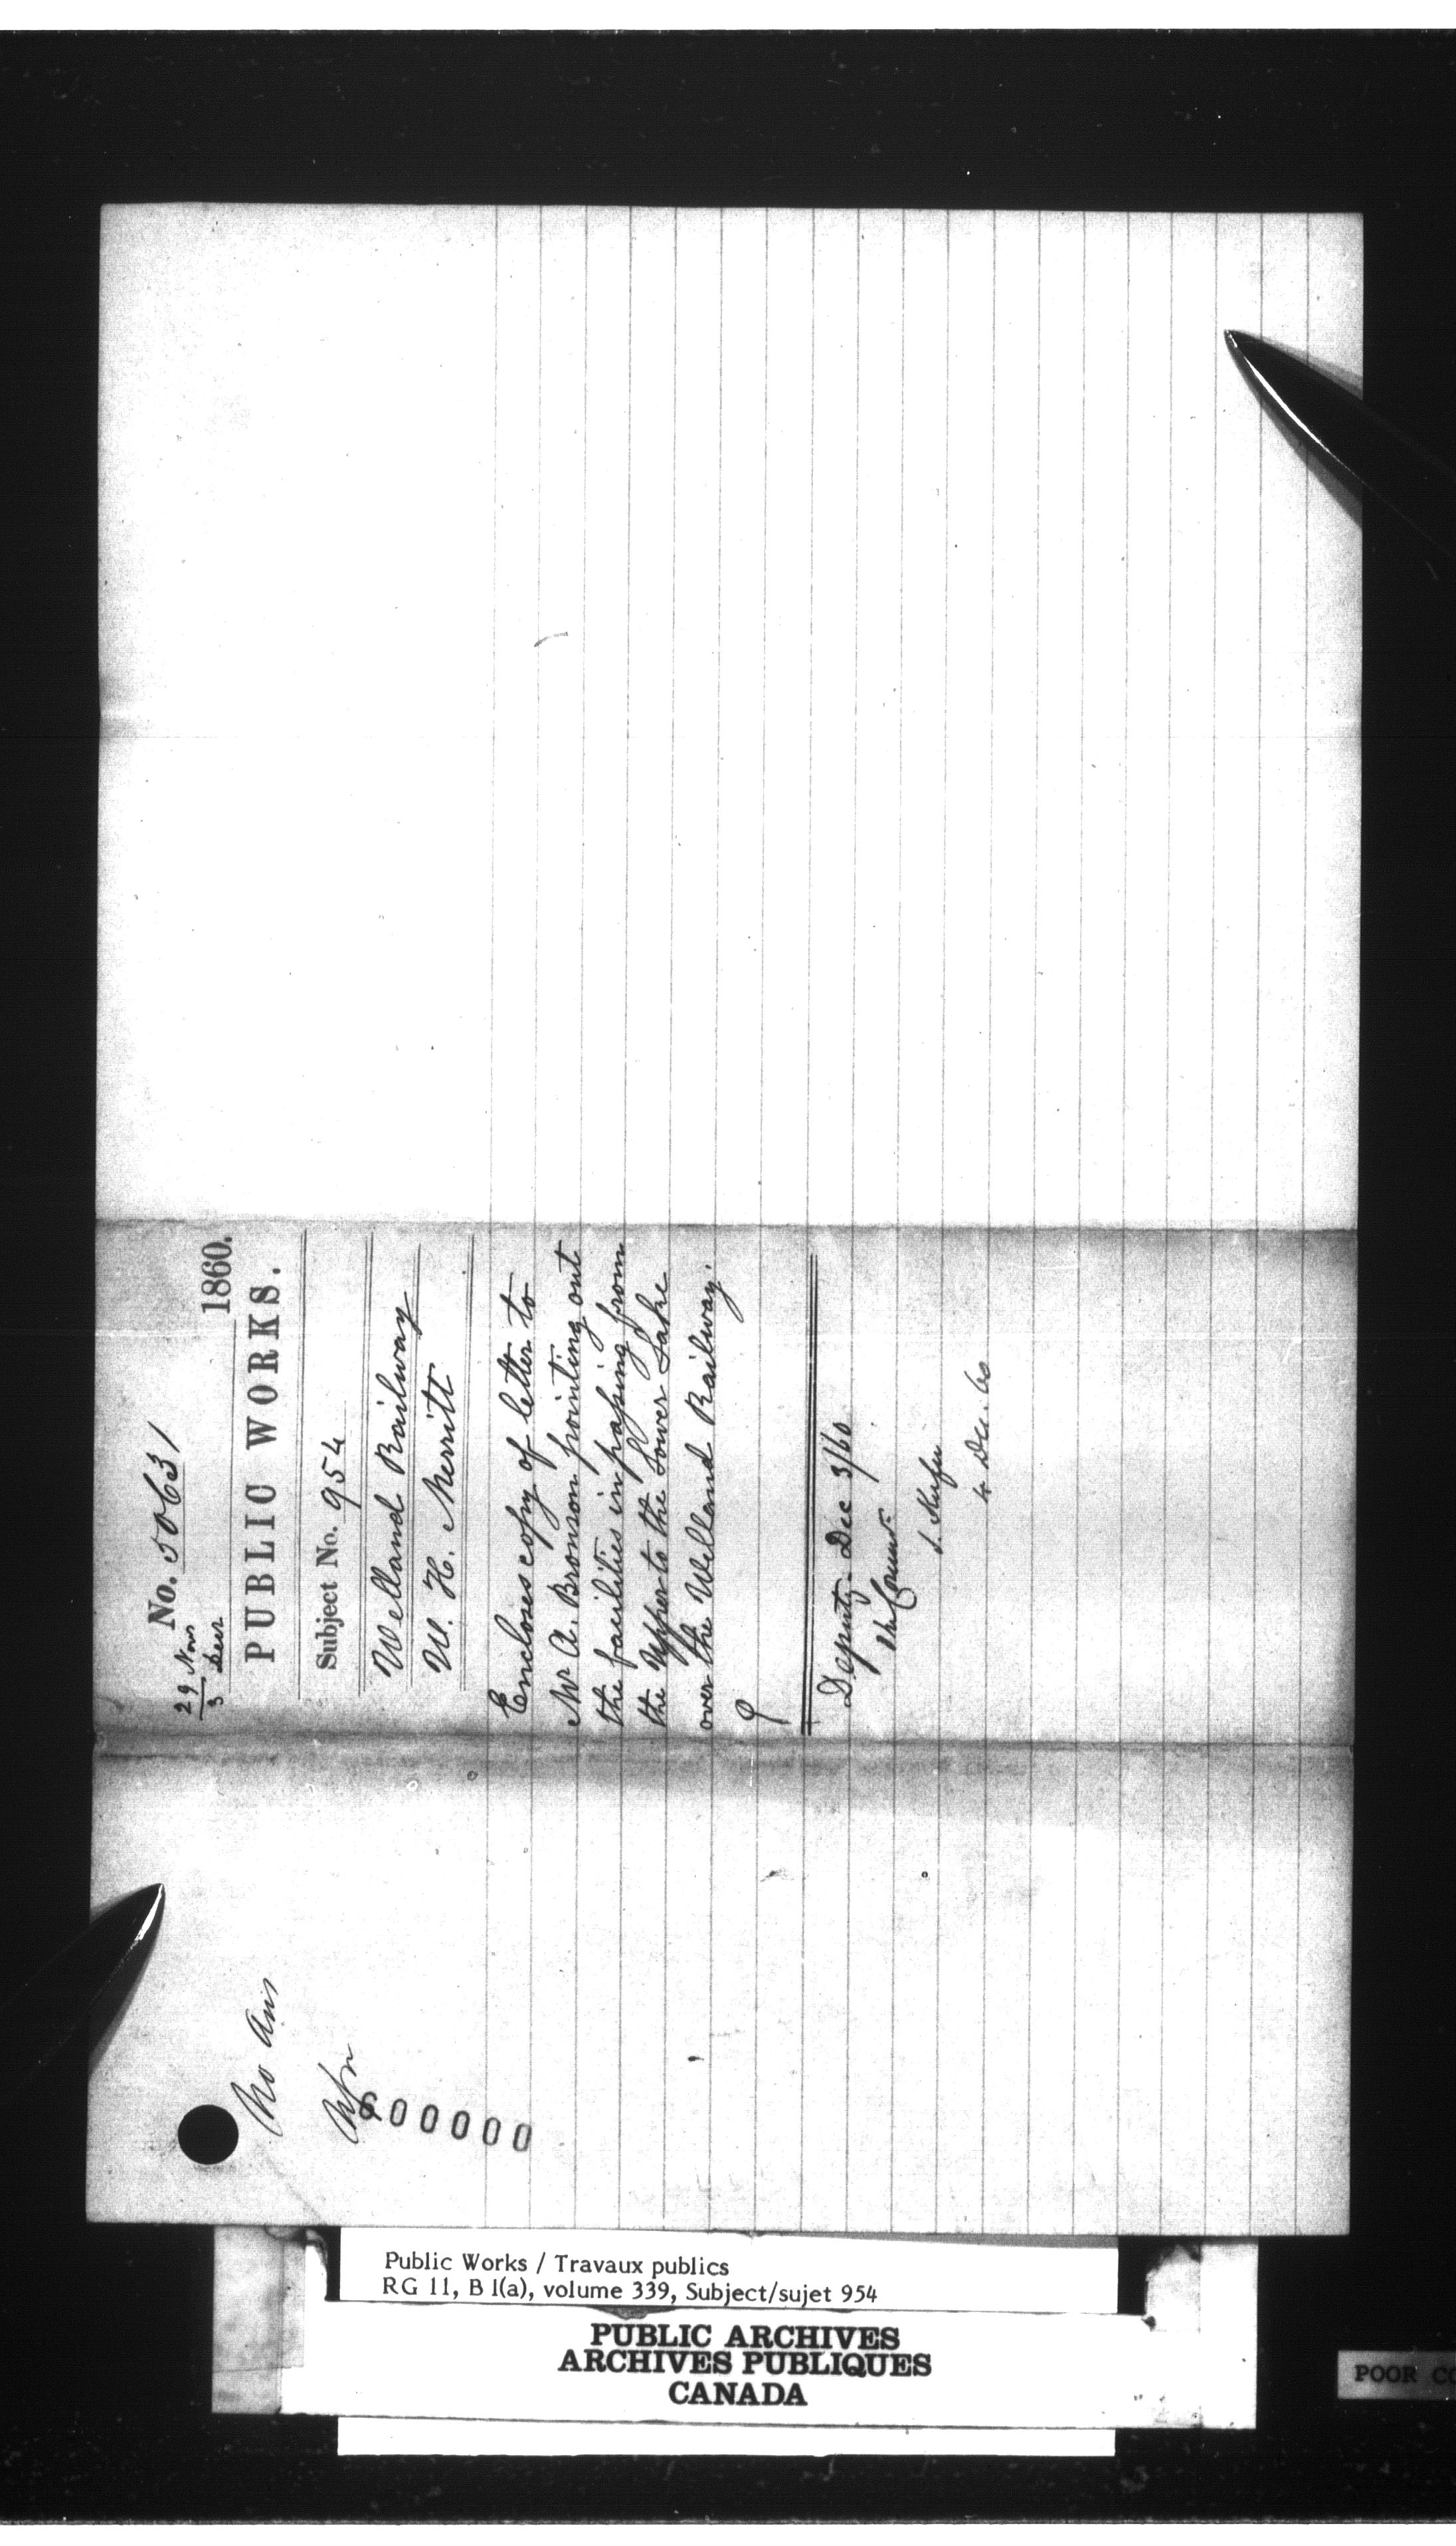 No. 50631
29 Novr
3 Decr
1860.
PUBLIC WORKS.
Subject No. 954
Welland Railway
W. H. Merritt
Encloses copy of letter to
Mr A. Bronson pointing out
the facilities in passing from
the Upper to the Lower Lake
over the Welland Railway.
Deputy. Dec 3/60
4 Dec. 60
No Ans
600000
Public Works / Travaux publics
RG 11, B 1(a), volume 339, Subject/sujet 954
PUBLIC ARCHIVES
ARCHIVES PUBLIQUES
CANADA
POOR